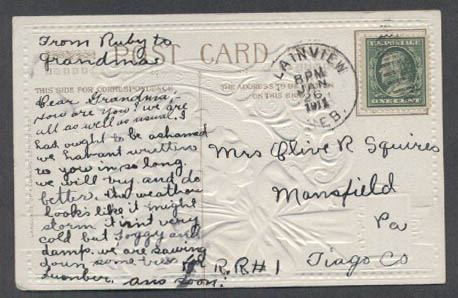 From Ruby to
Grandma
POST CARD
THIS SIDE FOR CORRESPONDENCE
THE ADDRESS TO BE
ON THIS
Dear Grandma,
How are you? we are
all as well as usual. I
had ought to be ashamed
we havant written
to you in so long.
we will try and do
better. the weather
looks like it might
storm it isnt very
cold but foggy and
damp. we are sawing
down some trees
lumber. ans soon.
LAINVIEW
8PM
JAN
26
1911
NEB.
U.S. POSTAGE
ONE CENT
Mrs Olive R Squires
Mansfield
Pa
R.R.#1
Tiago Co